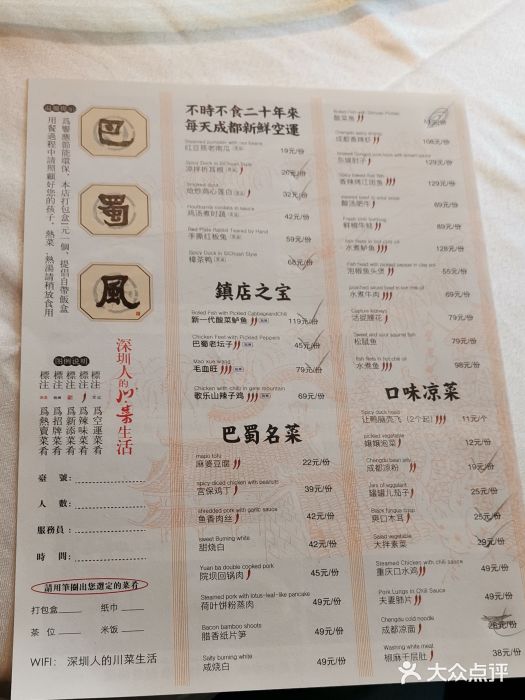 温馨提示
爲響應節能環保，本店打包盒1元一個，提倡自帶飯盒
用餐過程中請照顧好您的孩子，熱菜、熱湯請稍放食用
巴
蜀
風
深圳人的川菜生活
图例说明
標注 爲空運菜肴
標注 爲辣味菜肴
標注 爲新添菜肴
標注 爲招牌菜肴
標注 爲熱賣菜肴
臺 號：
人 數：
服務員：
時 間：
請用筆圈出您選定的菜肴
打包盒
纸巾
茶 位
米饭
WIFI： 深圳人的川菜生活
不時不食二十年來
每天成都新鮮空運
Steamed pumpkin with red beans
红豆蒸老南瓜
19元/份
Spicy Duck in SiChuan Style
凉拌折耳根
26元/份
Smoked dora
炝炒高心莲白
32元/份
Houttuynia cordata in sauce
鸡汤煮时蔬
42元/份
Red Plate Rabbit Teared by Hand
手撕红板兔
59元/份
Spicy Duck in SiChuan Style
樟茶鸭
68元/份
鎮店之宝
Boiled Fish with Pickled CabbageandChili
新一代酸菜鲈鱼
119元/份
Chicken Feet with Pickled Peppers
巴蜀老坛子
45元/份
Mao xue wang
毛血旺
79元/份
Chicken with chili in gele mountain
歌乐山辣子鸡
69元/份
巴蜀名菜
mapo tofu
麻婆豆腐
22元/份
spicy diced chicken with peanuts
宫保鸡丁
39元/份
shredded pork with garlic sauce
鱼香肉丝
42元/份
sweet Burning white
甜烧白
42元/份
Yuan ba double cooked pork
院坝回锅肉
45元/份
Steamed pork with lotus-leaf-like pancake
荷叶饼粉蒸肉
49元/份
Bacon bamboo shoots
腊香纸片笋
49元/份
Salty burning white
咸烧白
49元/份
酸菜鱼
成都香辣虾
108元/份
129元/份
Spicy baked fish Tan
香辣烤江团鱼
129元/份
酸汤肥牛
69元/份
鲜椒牛蛙
89元/份
fish fillets in hot chili oil
水煮鲈鱼
128元/份
Fish head with pickled pepper in clay pot
泡椒鱼头煲
55元/份
水煮牛肉
69元/份
79元/份
Sweet and sour squirrel fish
松鼠鱼
79元/份
fish filets in hot chile oil
水煮鱼
98元/份
口味凉菜
Spicy duck head
让鸭脑壳飞（2个起）
11元/个
pickled vegetable
嬢嬢泡菜
12元/份
Chengdu bean jelly
成都凉粉
19元/份
Jars of eggplant
罐罐儿茄子
25元/份
Black fungus crisp
爽口木耳
25元/份
Salad vegetable
大拌素菜
29元/份
Steamed Chicken with chili sauce
重庆口水鸡
49元/份
Pork Lungs in Chili Sauce
夫妻肺片
49元/份
Chengdu cold noodle
成都凉面
26元/份
Washing white meat
椒麻千层肚
38元/份
大众点评